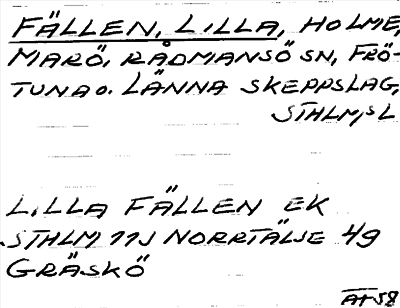 FÄLLEN, LILLA, HOLME,
MARÖ, RÅDMANSÖ SN, FRÖ-
TUNA O. LÄNNA SKEPPSLAG,
STHLM,S L
LILLA FÄLLEN EK
STHLM 11J NORRTÄLJE 4g
GRÄSKÖ
AT 58